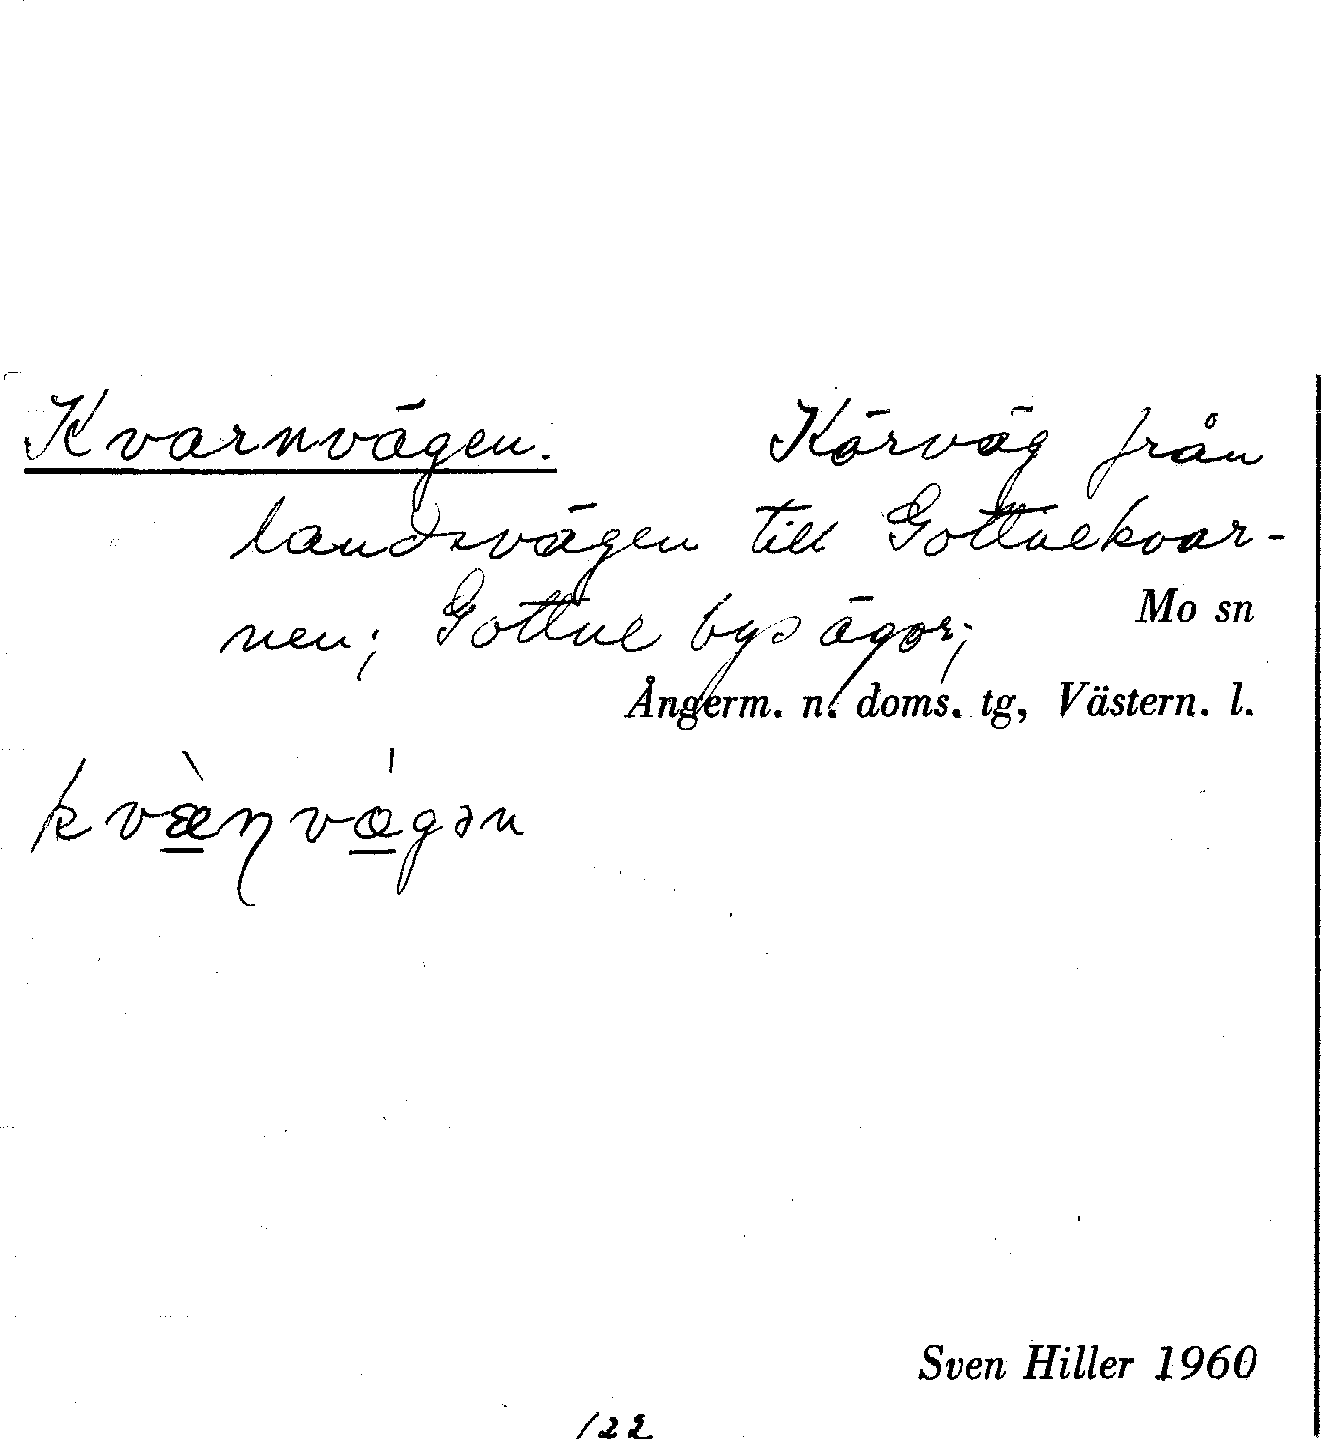 Kvarnvägen. Körväg från
landsvägen till Gottnekvar-
nen; Gottne bys ägor;
Mo sn
Ångerm. n. doms. tg, Västern. l.
kvæ̀ɳvágən
Sven Hiller 1960
122